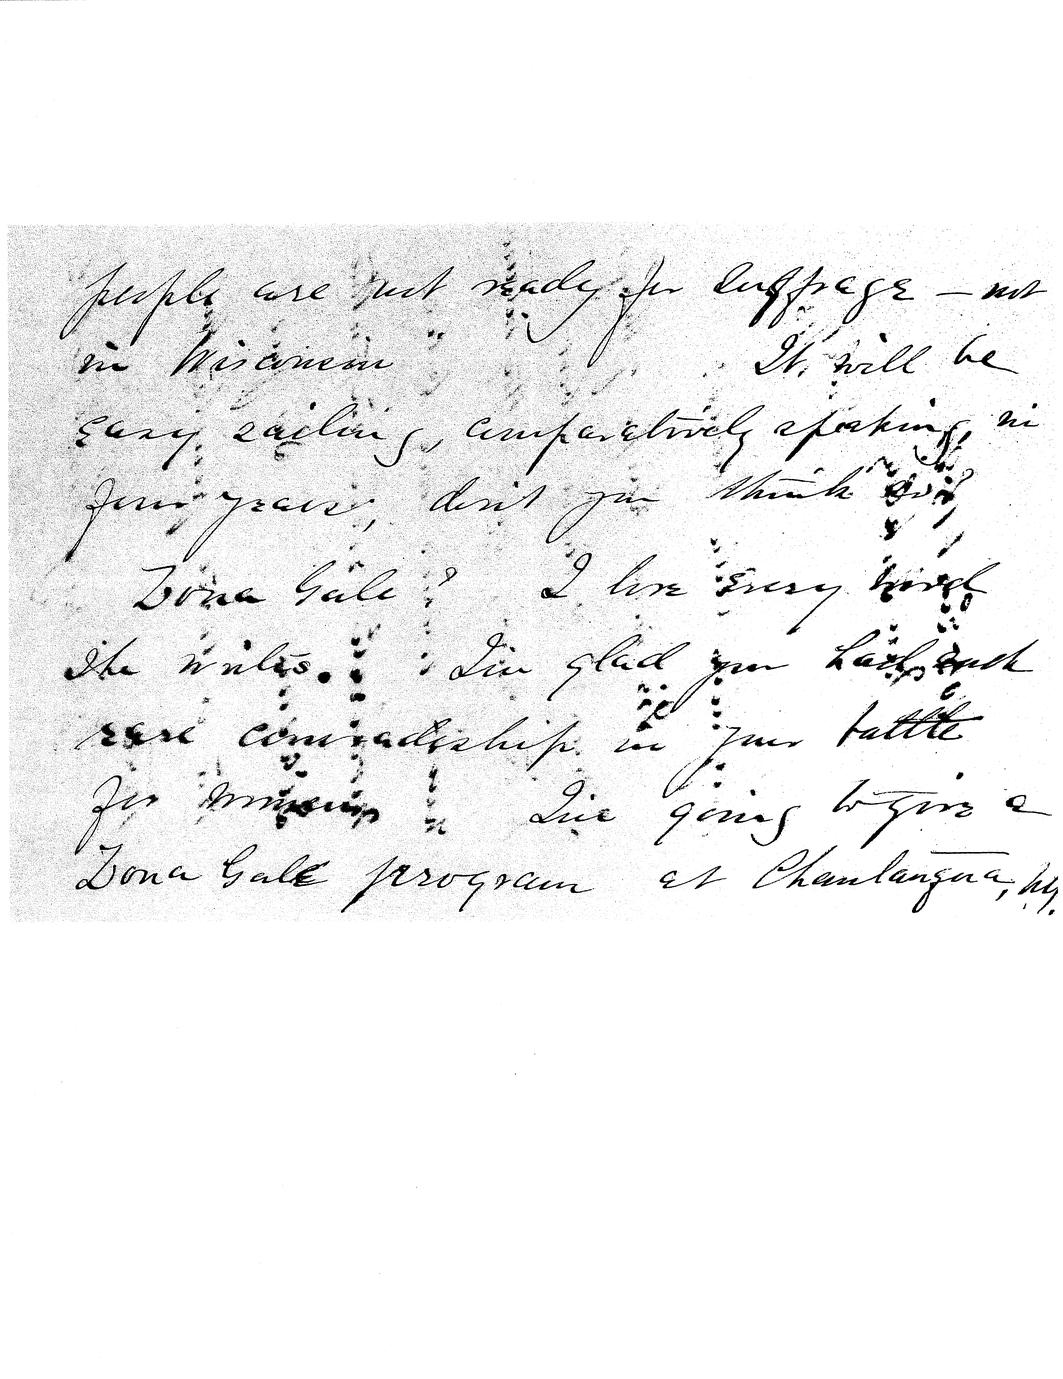 people are not ready for suffrage — not
in Wisconsin It will be
easy sailing, comparatively speaking, in
four years, don't you think so?
Zona Gale? I love every word
she writes. I'm glad you had such
rare comradeship in your battle
for women I'm going to give a
Zona Gale program at Chautauqua, N.Y.